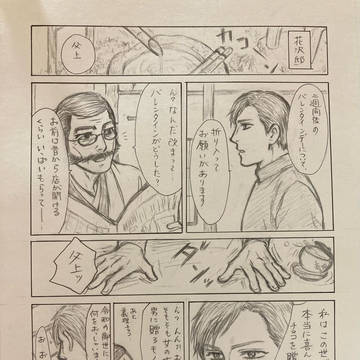 花沢邸
カコン
父上
二週間後の
バレンタインデーについて
折り入って
お願いがあります
ん?なんだ改まって…
バレンタインがどうした?
お前は昔から店が開ける
くらいいっぱいもらって
ダンッ
父上ッ
私はこの世
本当に喜ん
チョコを贈
男に贈るモ
あと
義理チョ
令和の御世に